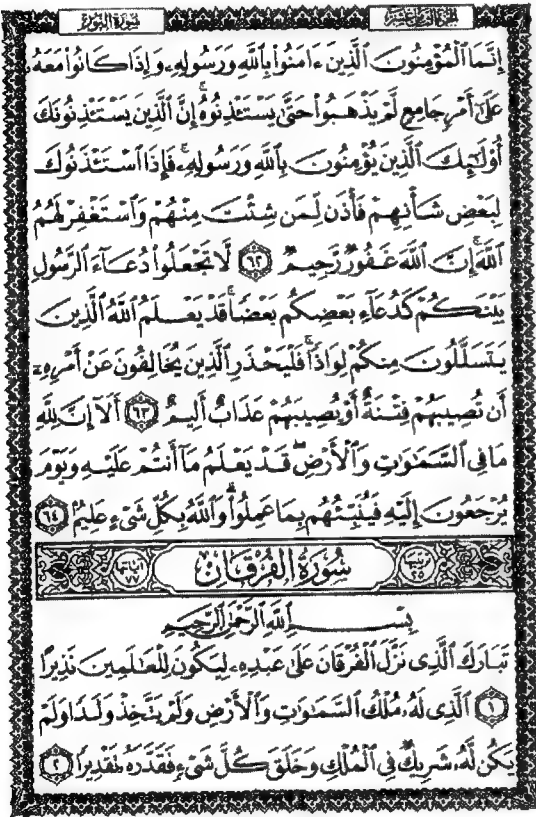 سُورَةُ النُّورِ
الجزء الثامن عشر
إِنَّمَا ٱلْمُؤْمِنُونَ ٱلَّذِينَ ءَامَنُوا۟ بِٱللَّهِ وَرَسُولِهِۦ وَإِذَا كَانُوا۟ مَعَهُۥ
عَلَىٰٓ أَمْرٍ جَامِعٍ لَّمْ يَذْهَبُوا۟ حَتَّىٰ يَسْتَـْٔذِنُوهُ ۚ إِنَّ ٱلَّذِينَ يَسْتَـْٔذِنُونَكَ
أُو۟لَـٰٓئِكَ ٱلَّذِينَ يُؤْمِنُونَ بِٱللَّهِ وَرَسُولِهِۦ ۚ فَإِذَا ٱسْتَـْٔذَنُوكَ
لِبَعْضِ شَأْنِهِمْ فَأْذَن لِّمَن شِئْتَ مِنْهُمْ وَٱسْتَغْفِرْ لَهُمُ
ٱللَّهَ ۚ إِنَّ ٱللَّهَ غَفُورٌ رَّحِيمٌ ٦٢ لَّا تَجْعَلُوا۟ دُعَآءَ ٱلرَّسُولِ
بَيْنَكُمْ كَدُعَآءِ بَعْضِكُم بَعْضًا ۚ قَدْ يَعْلَمُ ٱللَّهُ ٱلَّذِينَ
يَتَسَلَّلُونَ مِنكُمْ لِوَاذًا ۚ فَلْيَحْذَرِ ٱلَّذِينَ يُخَالِفُونَ عَنْ أَمْرِهِۦٓ
أَن تُصِيبَهُمْ فِتْنَةٌ أَوْ يُصِيبَهُمْ عَذَابٌ أَلِيمٌ ٦٣ أَلَآ إِنَّ لِلَّهِ
مَا فِى ٱلسَّمَـٰوَٰتِ وَٱلْأَرْضِ ۖ قَدْ يَعْلَمُ مَآ أَنتُمْ عَلَيْهِ وَيَوْمَ
يُرْجَعُونَ إِلَيْهِ فَيُنَبِّئُهُم بِمَا عَمِلُوا۟ ۗ وَٱللَّهُ بِكُلِّ شَىْءٍ عَلِيمٌۢ ٦٤
ترتيبها ٢٥ سُورَةُ الْفُرْقَانِ آياتها ٧٧
بِسْمِ ٱللَّهِ ٱلرَّحْمَـٰنِ ٱلرَّحِيمِ
تَبَارَكَ ٱلَّذِى نَزَّلَ ٱلْفُرْقَانَ عَلَىٰ عَبْدِهِۦ لِيَكُونَ لِلْعَـٰلَمِينَ نَذِيرًا
١ ٱلَّذِى لَهُۥ مُلْكُ ٱلسَّمَـٰوَٰتِ وَٱلْأَرْضِ وَلَمْ يَتَّخِذْ وَلَدًا وَلَمْ
يَكُن لَّهُۥ شَرِيكٌ فِى ٱلْمُلْكِ وَخَلَقَ كُلَّ شَىْءٍ فَقَدَّرَهُۥ تَقْدِيرًا ٢